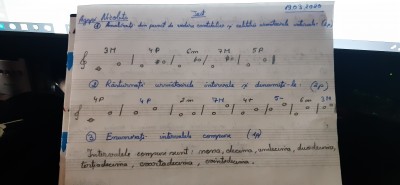 Nicoleta Test
① Analizați din punct de vedere cantitativ și calitativ următoarele intervale
3M 4P 6m 7M 5P
② Răsturnați următoarele intervale și denumiți-le: (2p)
4P 4P 2m 7M 4+ 5- 6m 3M
③ Enumerați intervalele compuse (4p)
Intervalele compuse sunt: nona, decima, undecima, duodecima,
terțiadecima, cvartadecima, cvintadecima.